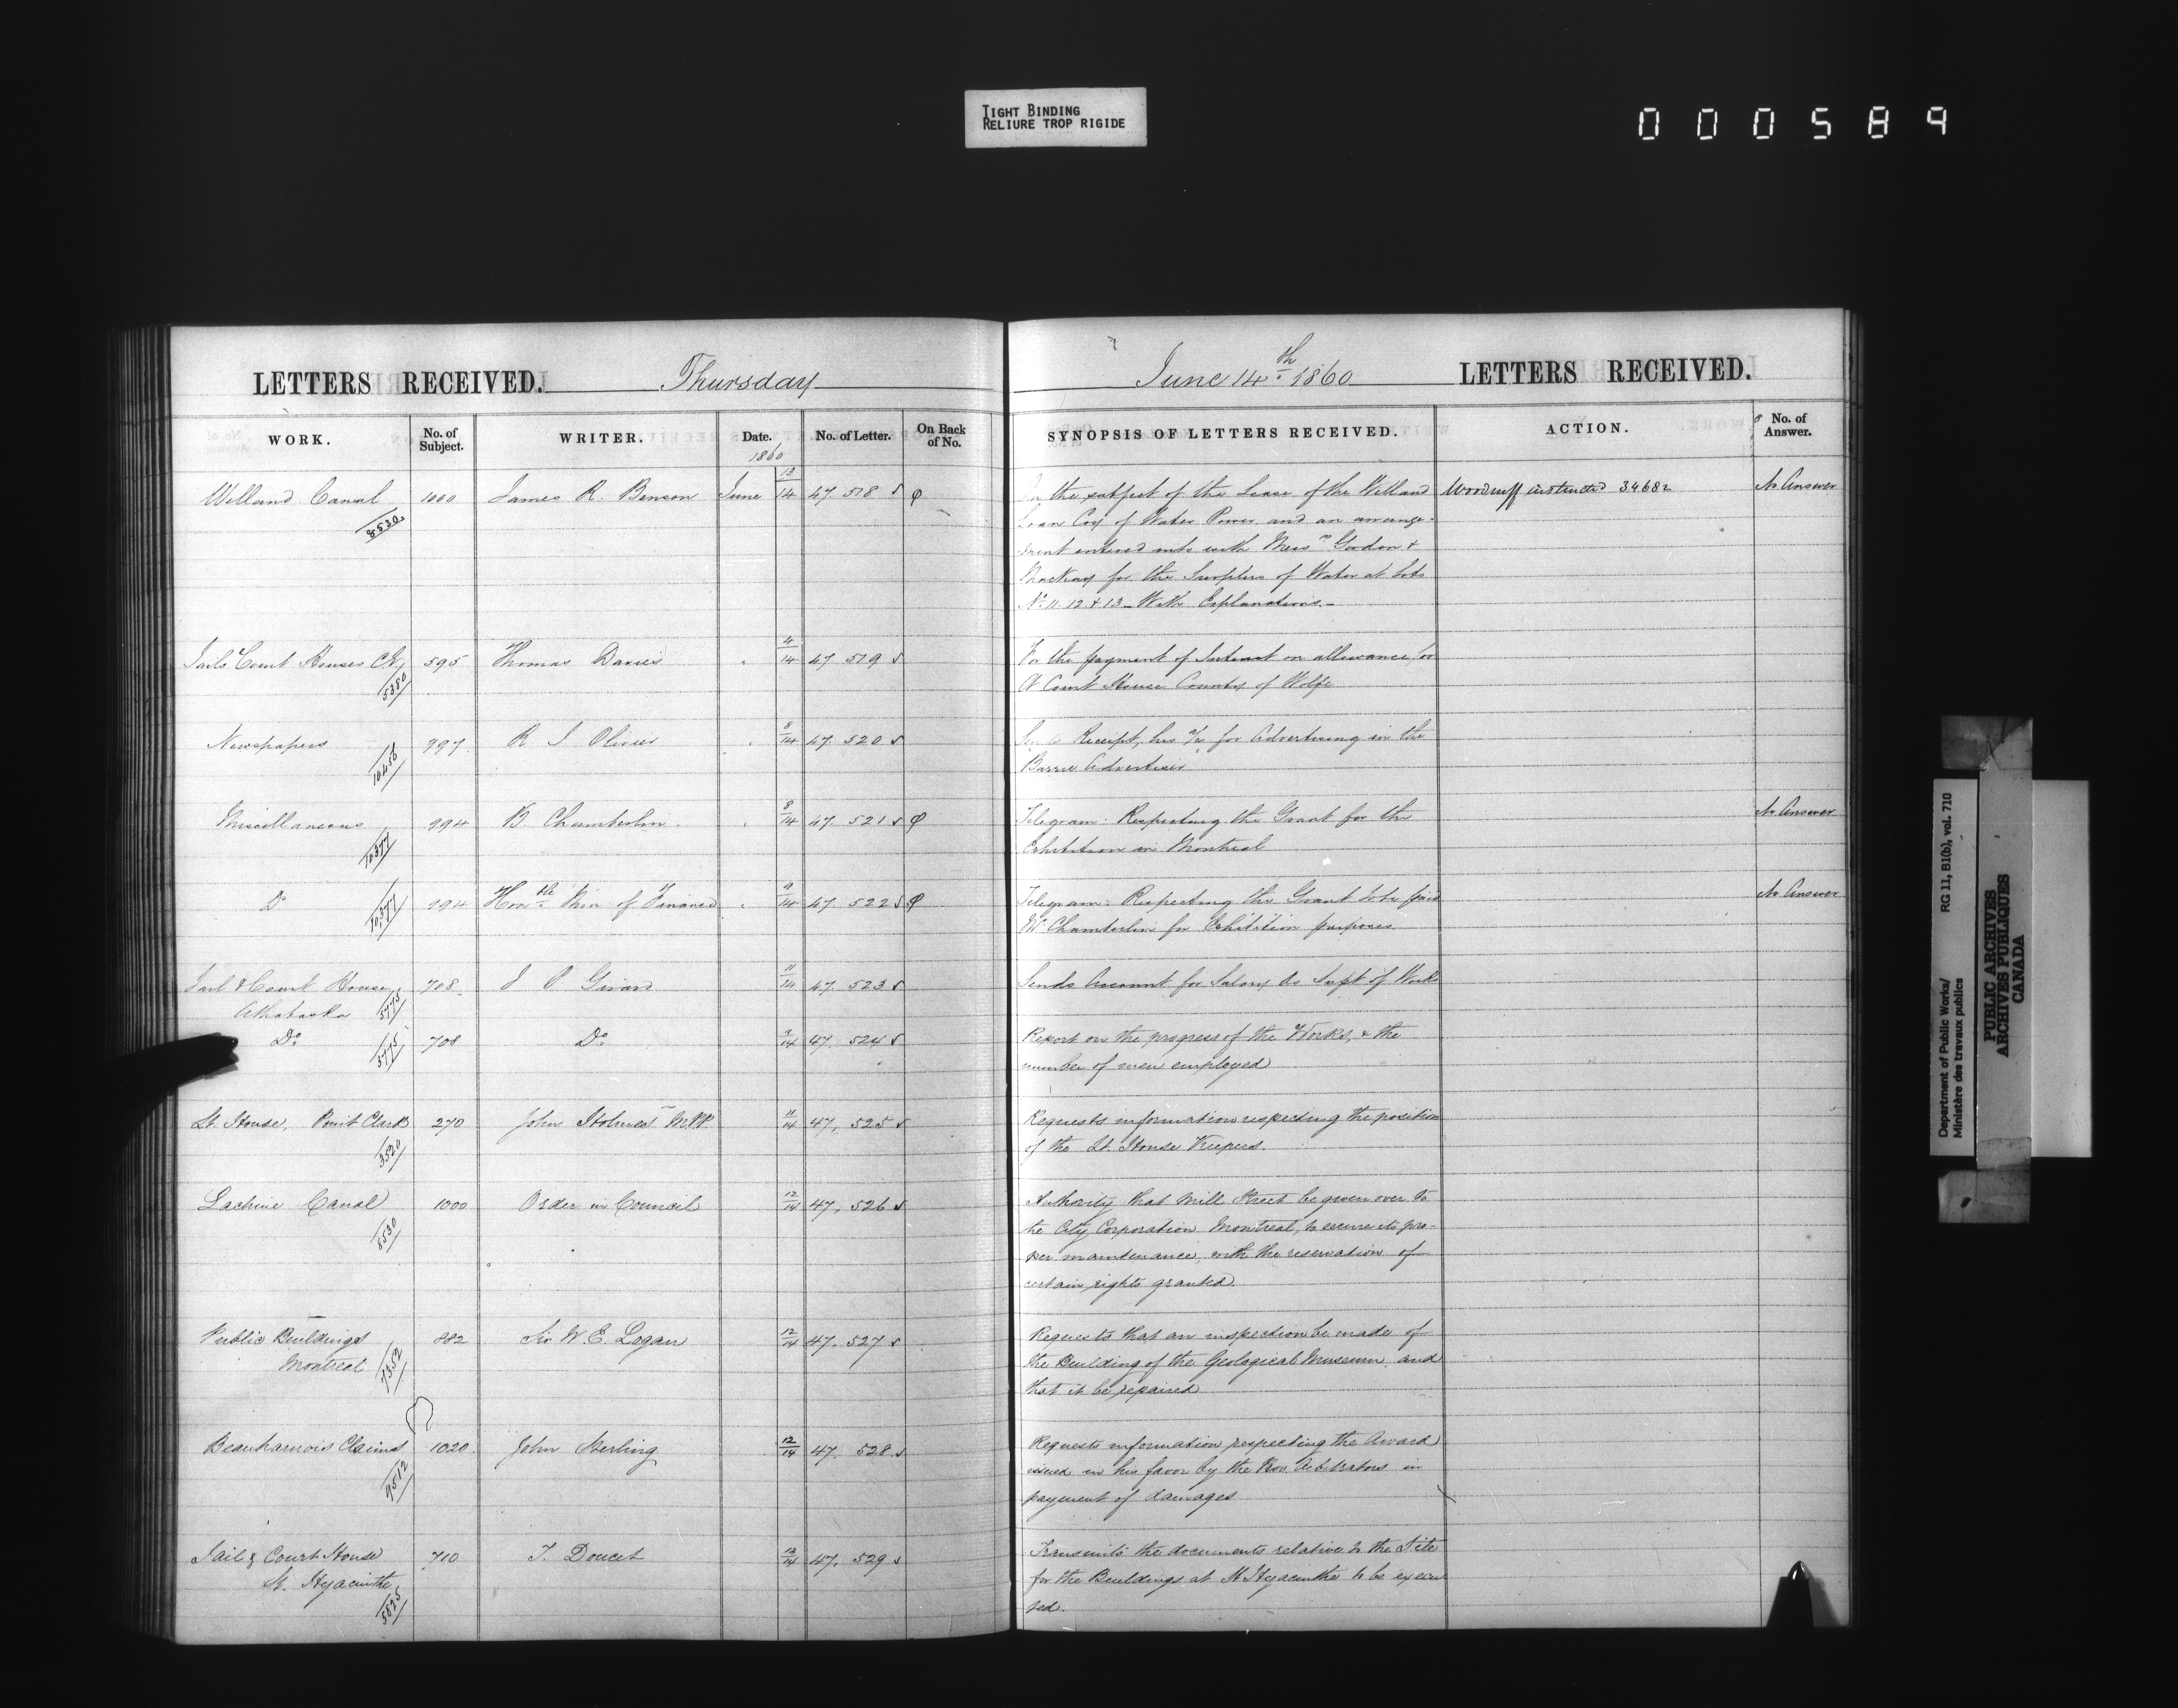 TIGHT BINDING
RELIURE TROP RIGIDE
000589
LETTERS RECEIVED. Thursday
WORK. No. of Subject. WRITER. Date. No. of Letter. On Back of No.
1860
Welland Canal 1000 James R. Benson June 13/14 47.518
8530
Jail & Court Houses C.E. 595 Thomas Davies " 4/14 47.519
5380
Newspapers 997 R I Olivier " 8/14 47.520
10456
Miscellaneous 994 B. Chamberlin " 8/14 47.521 φ
10377
Do 994 Honble Min of Finance " 9/14 47.522 φ
10,377
Jail & Court House 708 J P Girard 11/14 47.523
Athabaska 5775
Do 708 Do 47.524
5775
Lt. House, Point Clark 270 John Holmes M.P.P. 11/14 47.525
3520
Lachine Canal 1000 Order in Council 12/14 47.526
8530
Public Buildings 882 Sir W. E. Logan 12/14 47.527
Montreal 7352
Beauharnois Claims 1020 John Sterling 12/14 47.528
9512
Jail & Court House 710 T. Doucet 13/14 47.529
St. Hyacinthe
5823
June 14th 1860 LETTERS RECEIVED.
SYNOPSIS OF LETTERS RECEIVED. ACTION. No. of Answer.
On the subject of the Lease of the Welland Woodruff instructed 34682 No Answer
Loan Coy of Water Power and an arrange-
ment entered into with Messrs Gordon &
Mackay for the Surplus of Water at Lots
No 11. 12 & 13 - With Explanations. -
For the payment of Interest on allowance for
A Court House County of Wolfe
Receipt, his a/c for Advertising in the
Barrie Advertiser
Telegram: Respecting the Grant for the No Answer
Exhibition in Montreal
Telegram: Respecting the Grant to be paid No Answer
Mr Chamberlin for Exhibition purposes
Sends Account for Salary as Supt of Works
Report on the progress of the Works, & the
number of men employed
Requests information respecting the position
of the Lt. House Keepers.
Authority that Mill Street be given over to
the City Corporation Montreal, to secure its pro-
per maintenance, with the reservation of
certain rights granted.
Requests that an inspection be made of
the Building of the Geological Museum, and
that it be repaired
Requests information respecting the Award
issued in his favor by the Prov. Arbitrators in
payment of damages
Transmits the documents relative to the Site
for the Buildings at St Hyacinthe to be execu
ted.
Department of Public Works/ RG 11, B1(b), vol. 710
Ministère des travaux publics
PUBLIC ARCHIVES
ARCHIVES PUBLIQUES
CANADA